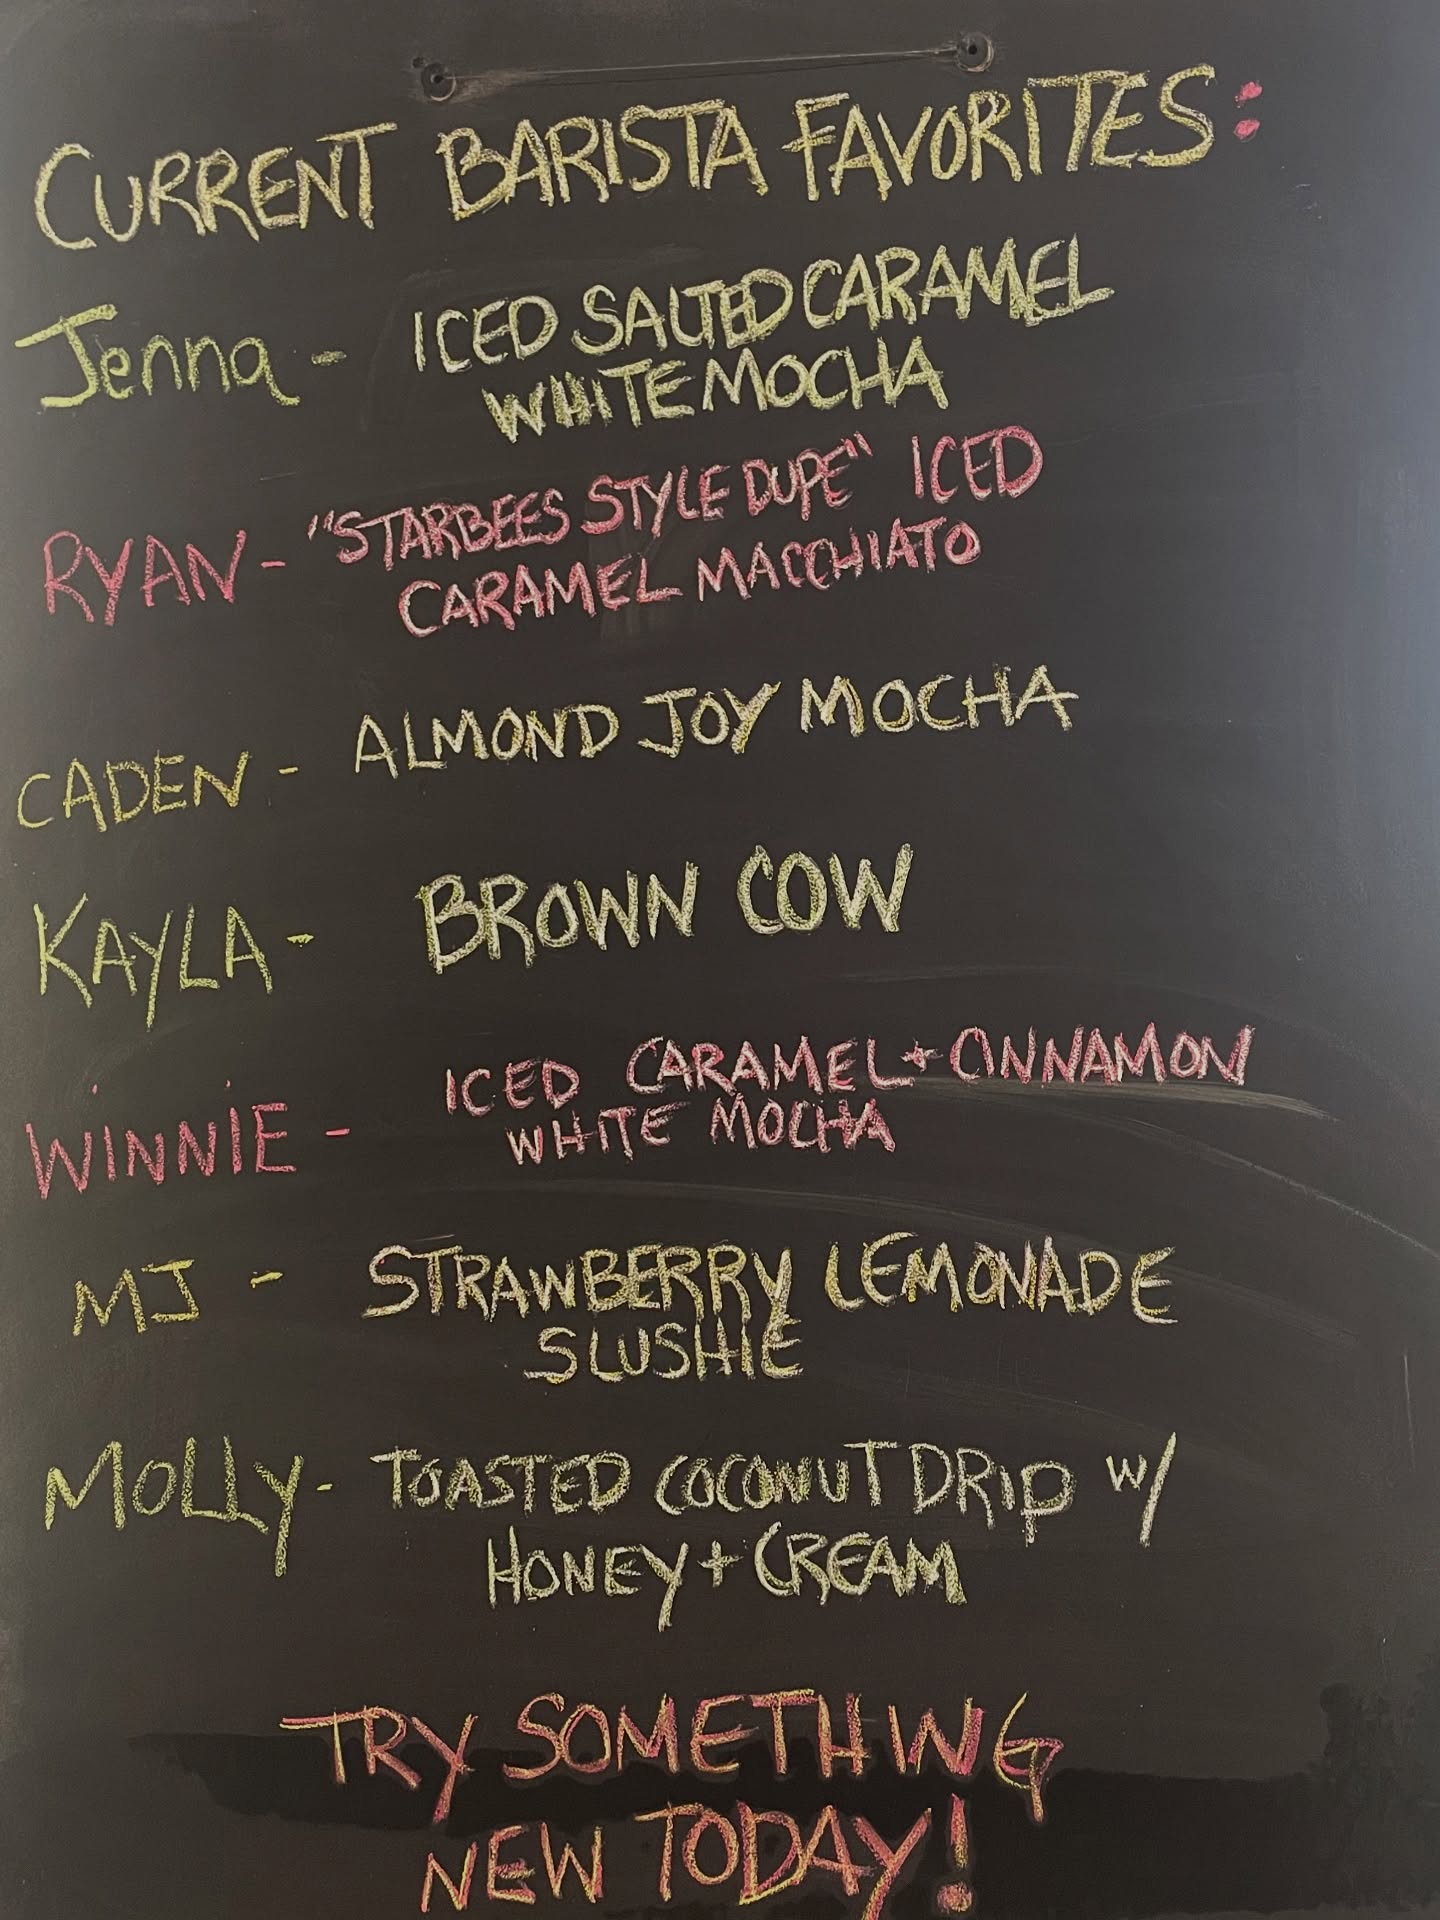 CURRENT BARISTA FAVORITES:
Jenna - ICED SALTED CARAMEL
WHITE MOCHA
RYAN - "STARBEES STYLE DUPE" ICED
CARAMEL MACCHIATO
CADEN - ALMOND JOY MOCHA
KAYLA - BROWN COW
WINNIE - ICED CARAMEL + CINNAMON
WHITE MOCHA
MJ - STRAWBERRY LEMONADE
SLUSHIE
MOLLY - TOASTED COCONUT DRIP W/
HONEY + CREAM
TRY SOMETHING
NEW TODAY!